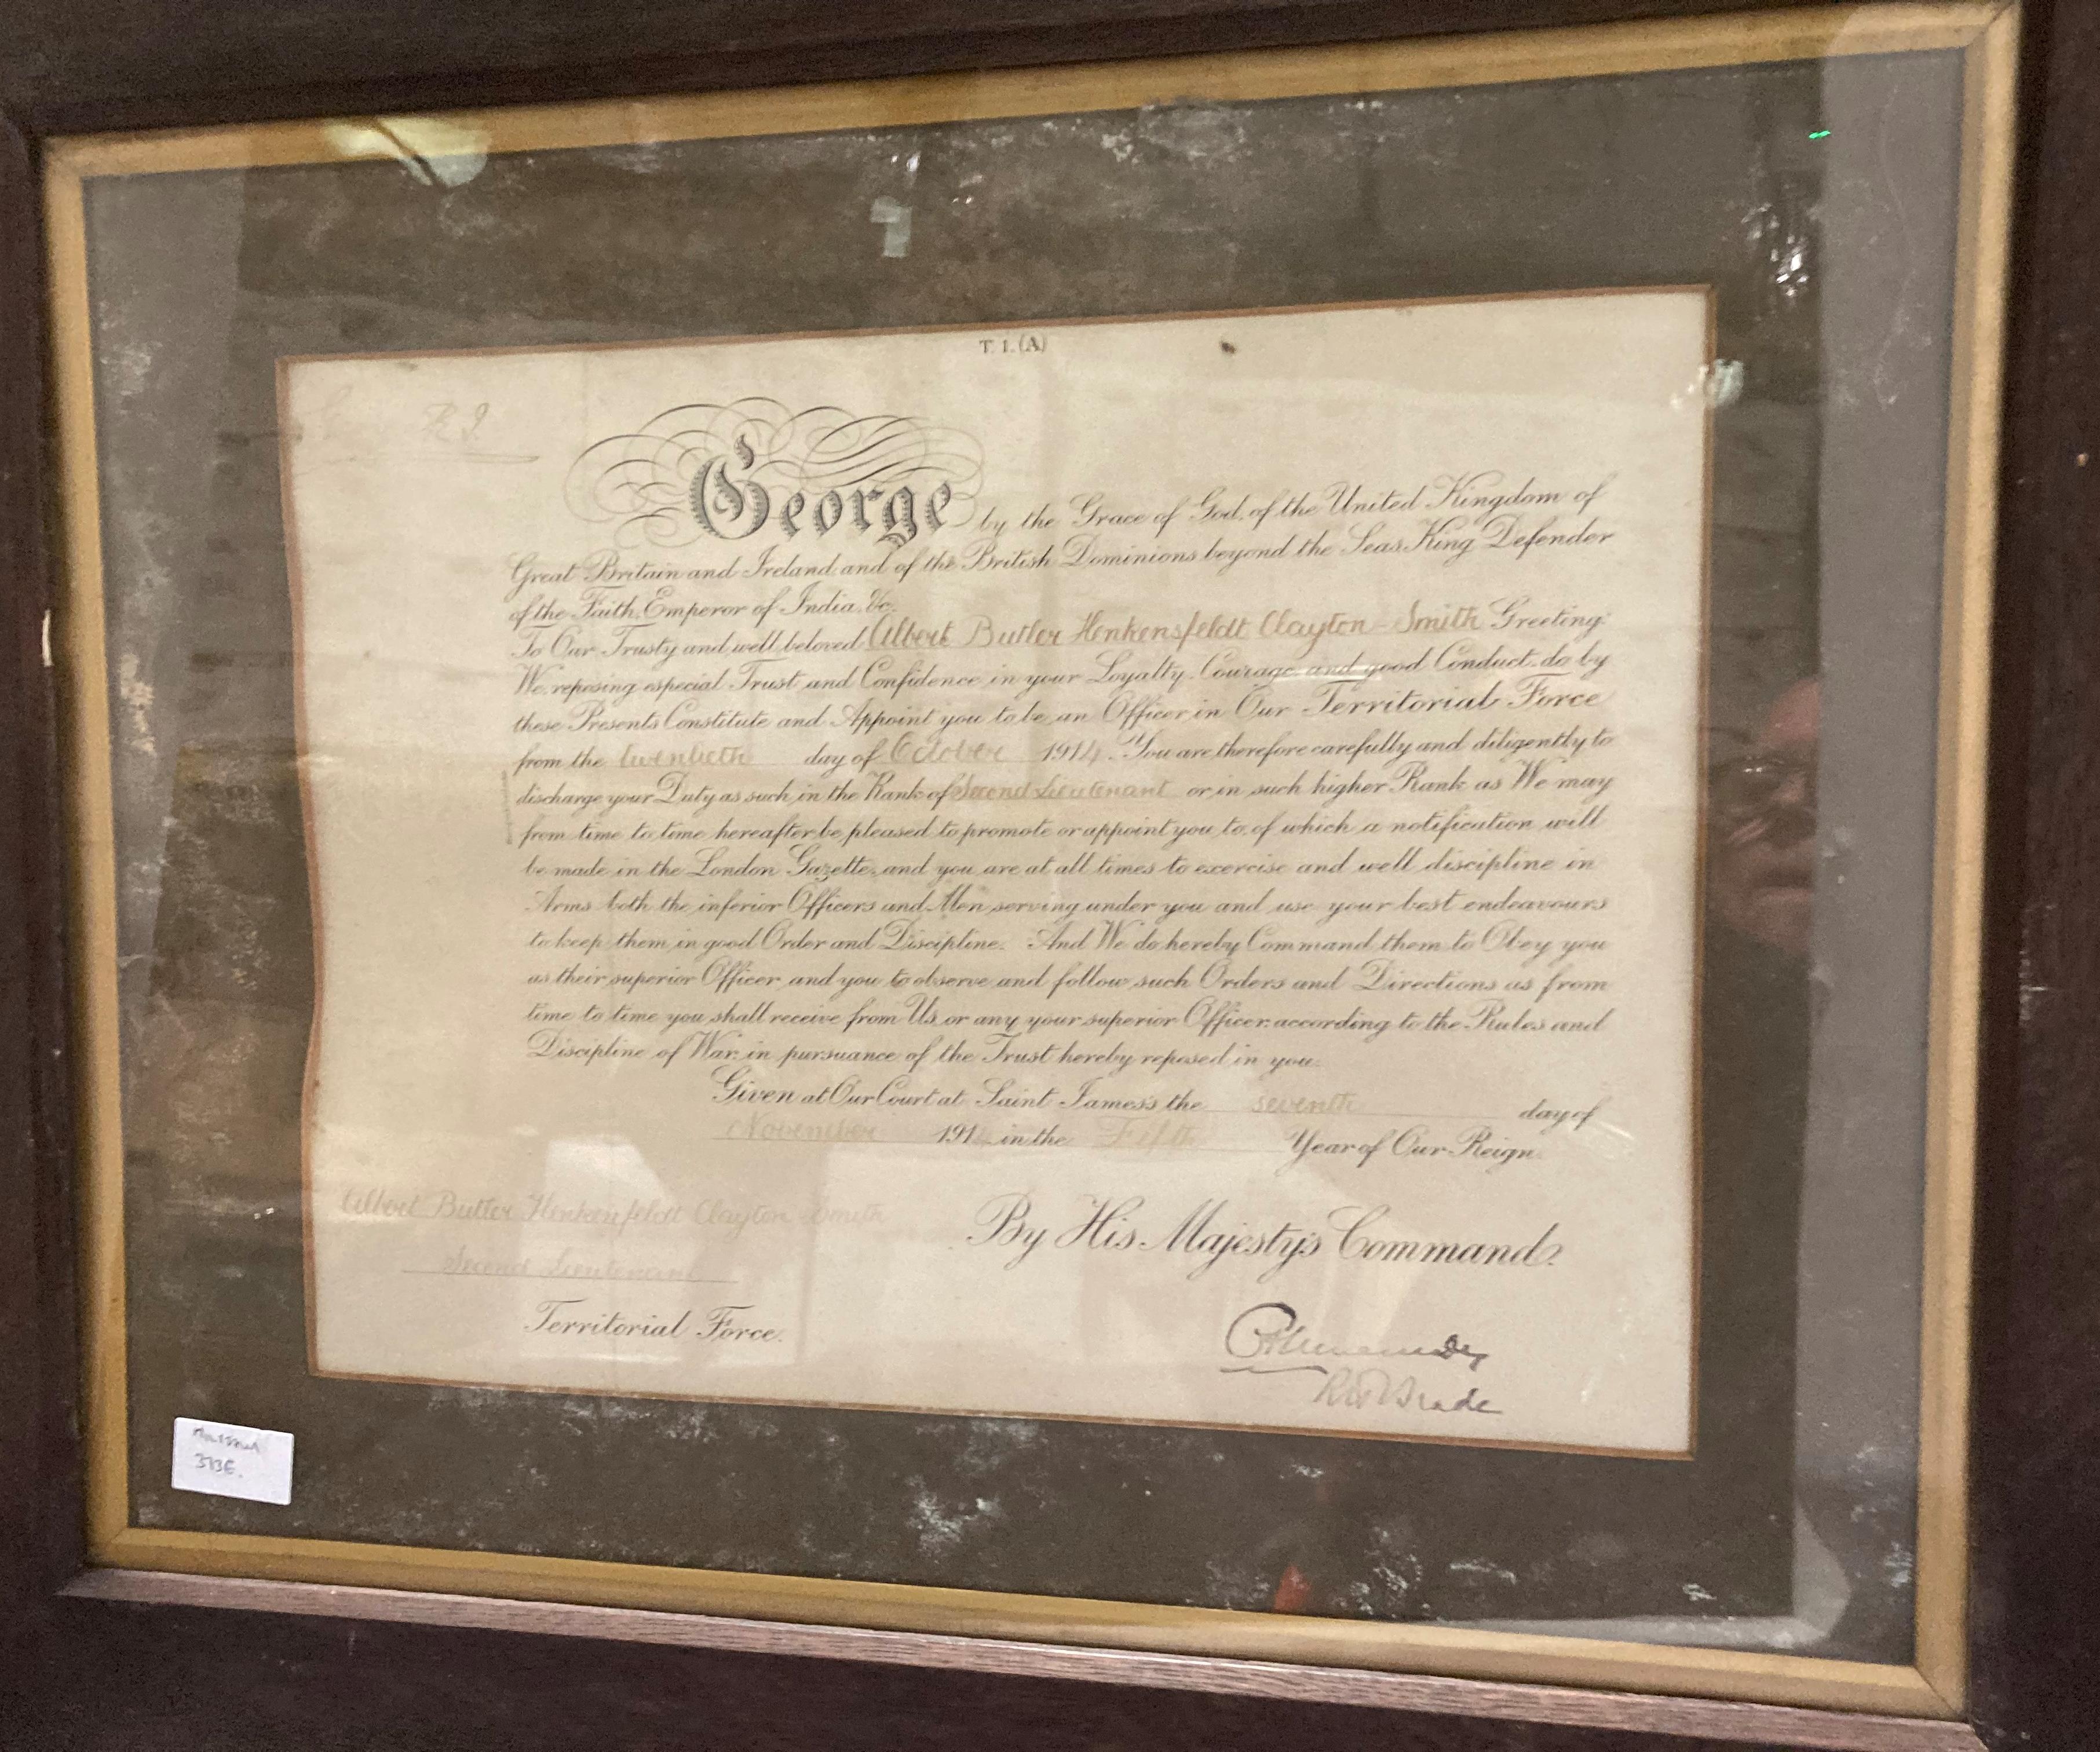 T. 1. (A)
George by the Grace of God, of the United Kingdom of
Great Britain and Ireland and of the British Dominions beyond the Seas King Defender
of the Faith, Emperor of India, &c.
To Our Trusty and well beloved Albert Butler Henkensfeldt Clayton-Smith Greeting:
We, reposing especial Trust and Confidence in your Loyalty, Courage and good Conduct, do by
these Presents Constitute and Appoint you to be an Officer in Our Territorial Force
from the twentieth day of October 1914. You are therefore carefully and diligently to
discharge your Duty as such in the Rank of Second Lieutenant or in such higher Rank as We may
from time to time hereafter be pleased to promote or appoint you to, of which a notification will
be made in the London Gazette, and you are at all times to exercise and well discipline in
Arms both the inferior Officers and Men serving under you and use your best endeavours
to keep them in good Order and Discipline. And We do hereby Command them to Obey you
as their superior Officer, and you to observe and follow such Orders and Directions as from
time to time you shall receive from Us, or any your superior Officer, according to the Rules and
Discipline of War, in pursuance of the Trust hereby reposed in you.
Given at Our Court at Saint James's the seventh day of
November 191 in the Fifth Year of Our Reign.
By His Majesty's Command.
Albert Butler Henkensfeldt Clayton-Smith
Second Lieutenant
Territorial Force.
R H Brade
373E.